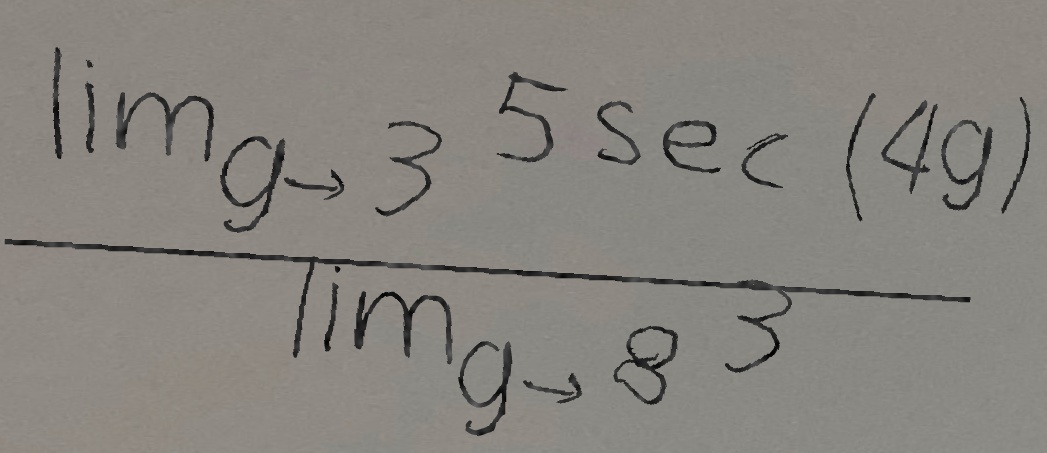 lim g→3 5 sec (4g)
lim g→8 3